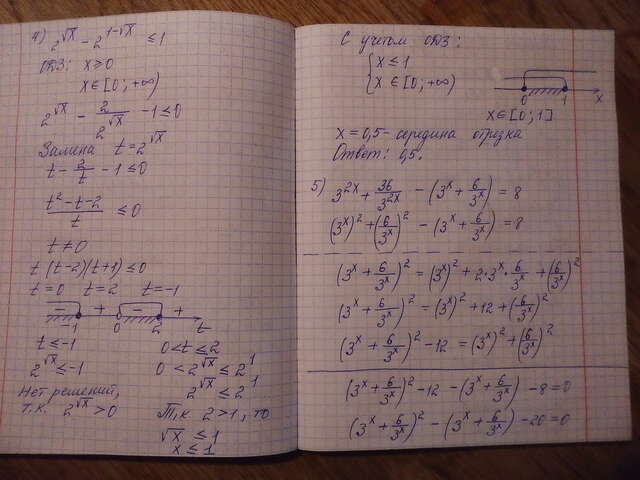 4) 2^√x - 2^(1-√x) ≤ 1
ОДЗ: x ≥ 0
x ∈ [0; +∞)
2^√x - 2/2^√x - 1 ≤ 0
Замена t = 2^√x
t - 2/t - 1 ≤ 0
(t² - t - 2)/t ≤ 0
t ≠ 0
t (t-2)(t+1) ≤ 0
t = 0 t = 2 t = -1
- + - +
-1 0 2 t
t ≤ -1 0 < t ≤ 2
2^√x ≤ -1 0 < 2^√x ≤ 2^1
Нет решений, 2^√x ≤ 2^1
т.к. 2^√x > 0 Т.к 2 > 1, то
√x ≤ 1
x ≤ 1
С учетом ОДЗ:
{x ≤ 1
{x ∈ [0; +∞)
0 1 x
x ∈ [0; 1]
x = 0,5 - середина отрезка
Ответ: 0,5.
5) 3^(2x) + 36/3^(2x) - (3^x + 6/3^x) = 8
(3^x)² + (6/3^x)² - (3^x + 6/3^x) = 8
(3^x + 6/3^x)² = (3^x)² + 2·3^x·6/3^x + (6/3^x)²
(3^x + 6/3^x)² = (3^x)² + 12 + (6/3^x)²
(3^x + 6/3^x)² - 12 = (3^x)² + (6/3^x)²
(3^x + 6/3^x)² - 12 - (3^x + 6/3^x) - 8 = 0
(3^x + 6/3^x)² - (3^x + 6/3^x) - 20 = 0